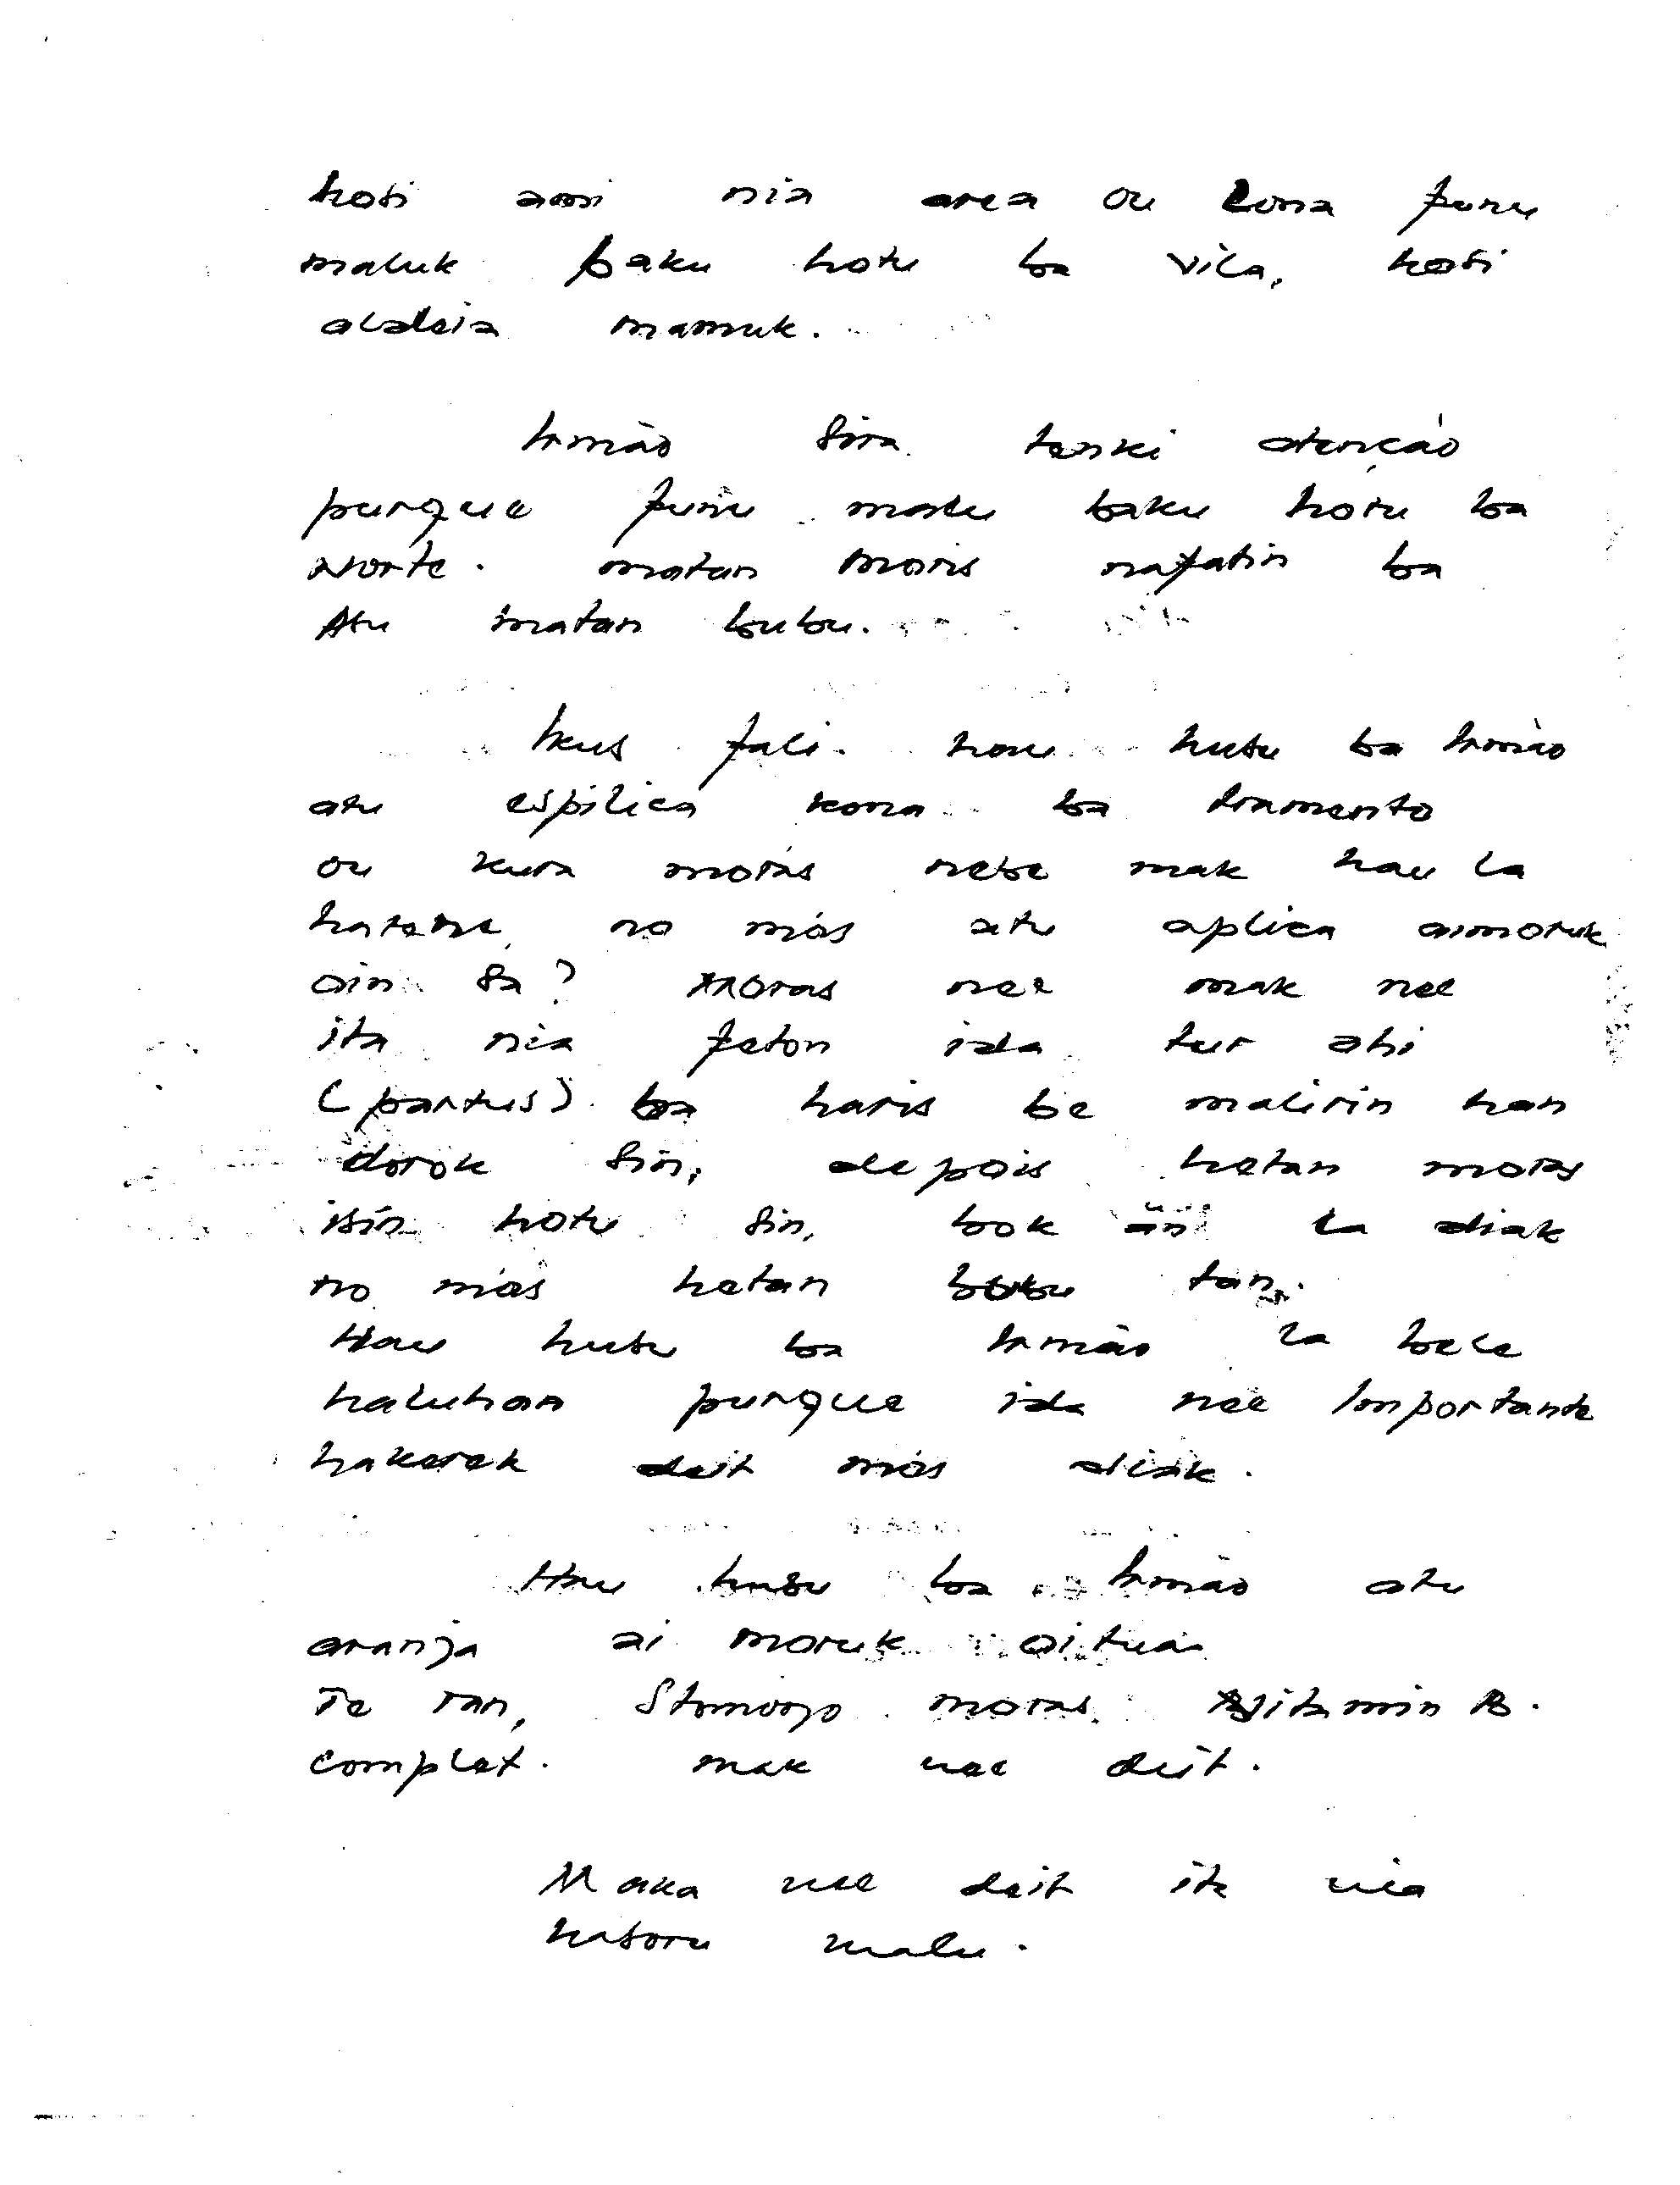 hosi ami nia area ou Zona funu
maluk baku hotu ba vila, hosi
aldeia mamuk.
Irmão Sira tenki atenção
purque funu malu baku hotu ba
Norte. matan moris nafatin ba
Atu matan bubu.
hus fali. hau husu ba Irmão
atu espilica kona ba tramento
ou kura morás nebe mak hau la
hatene, no mós atu aplica aimoruk
oin Sa? Moras nee mak nee
ita nia feton ida tur ahi
(partus) ba haris be malirin han
dorok Sin, depois hetan moras
isin hotu Sin, bok an la diak
no mos hetan bubu tan.
Hau husu ba Irmão la bele
haluhan purque ida nee Importante
hakerek deit mós diak.
Hau husu ba Irmão atu
aranja ai moruk
Te ran, Stomogo moras, Vitamin B.
complet. mak nee deit.
Maka nee deit ita nia
hasoru malu.